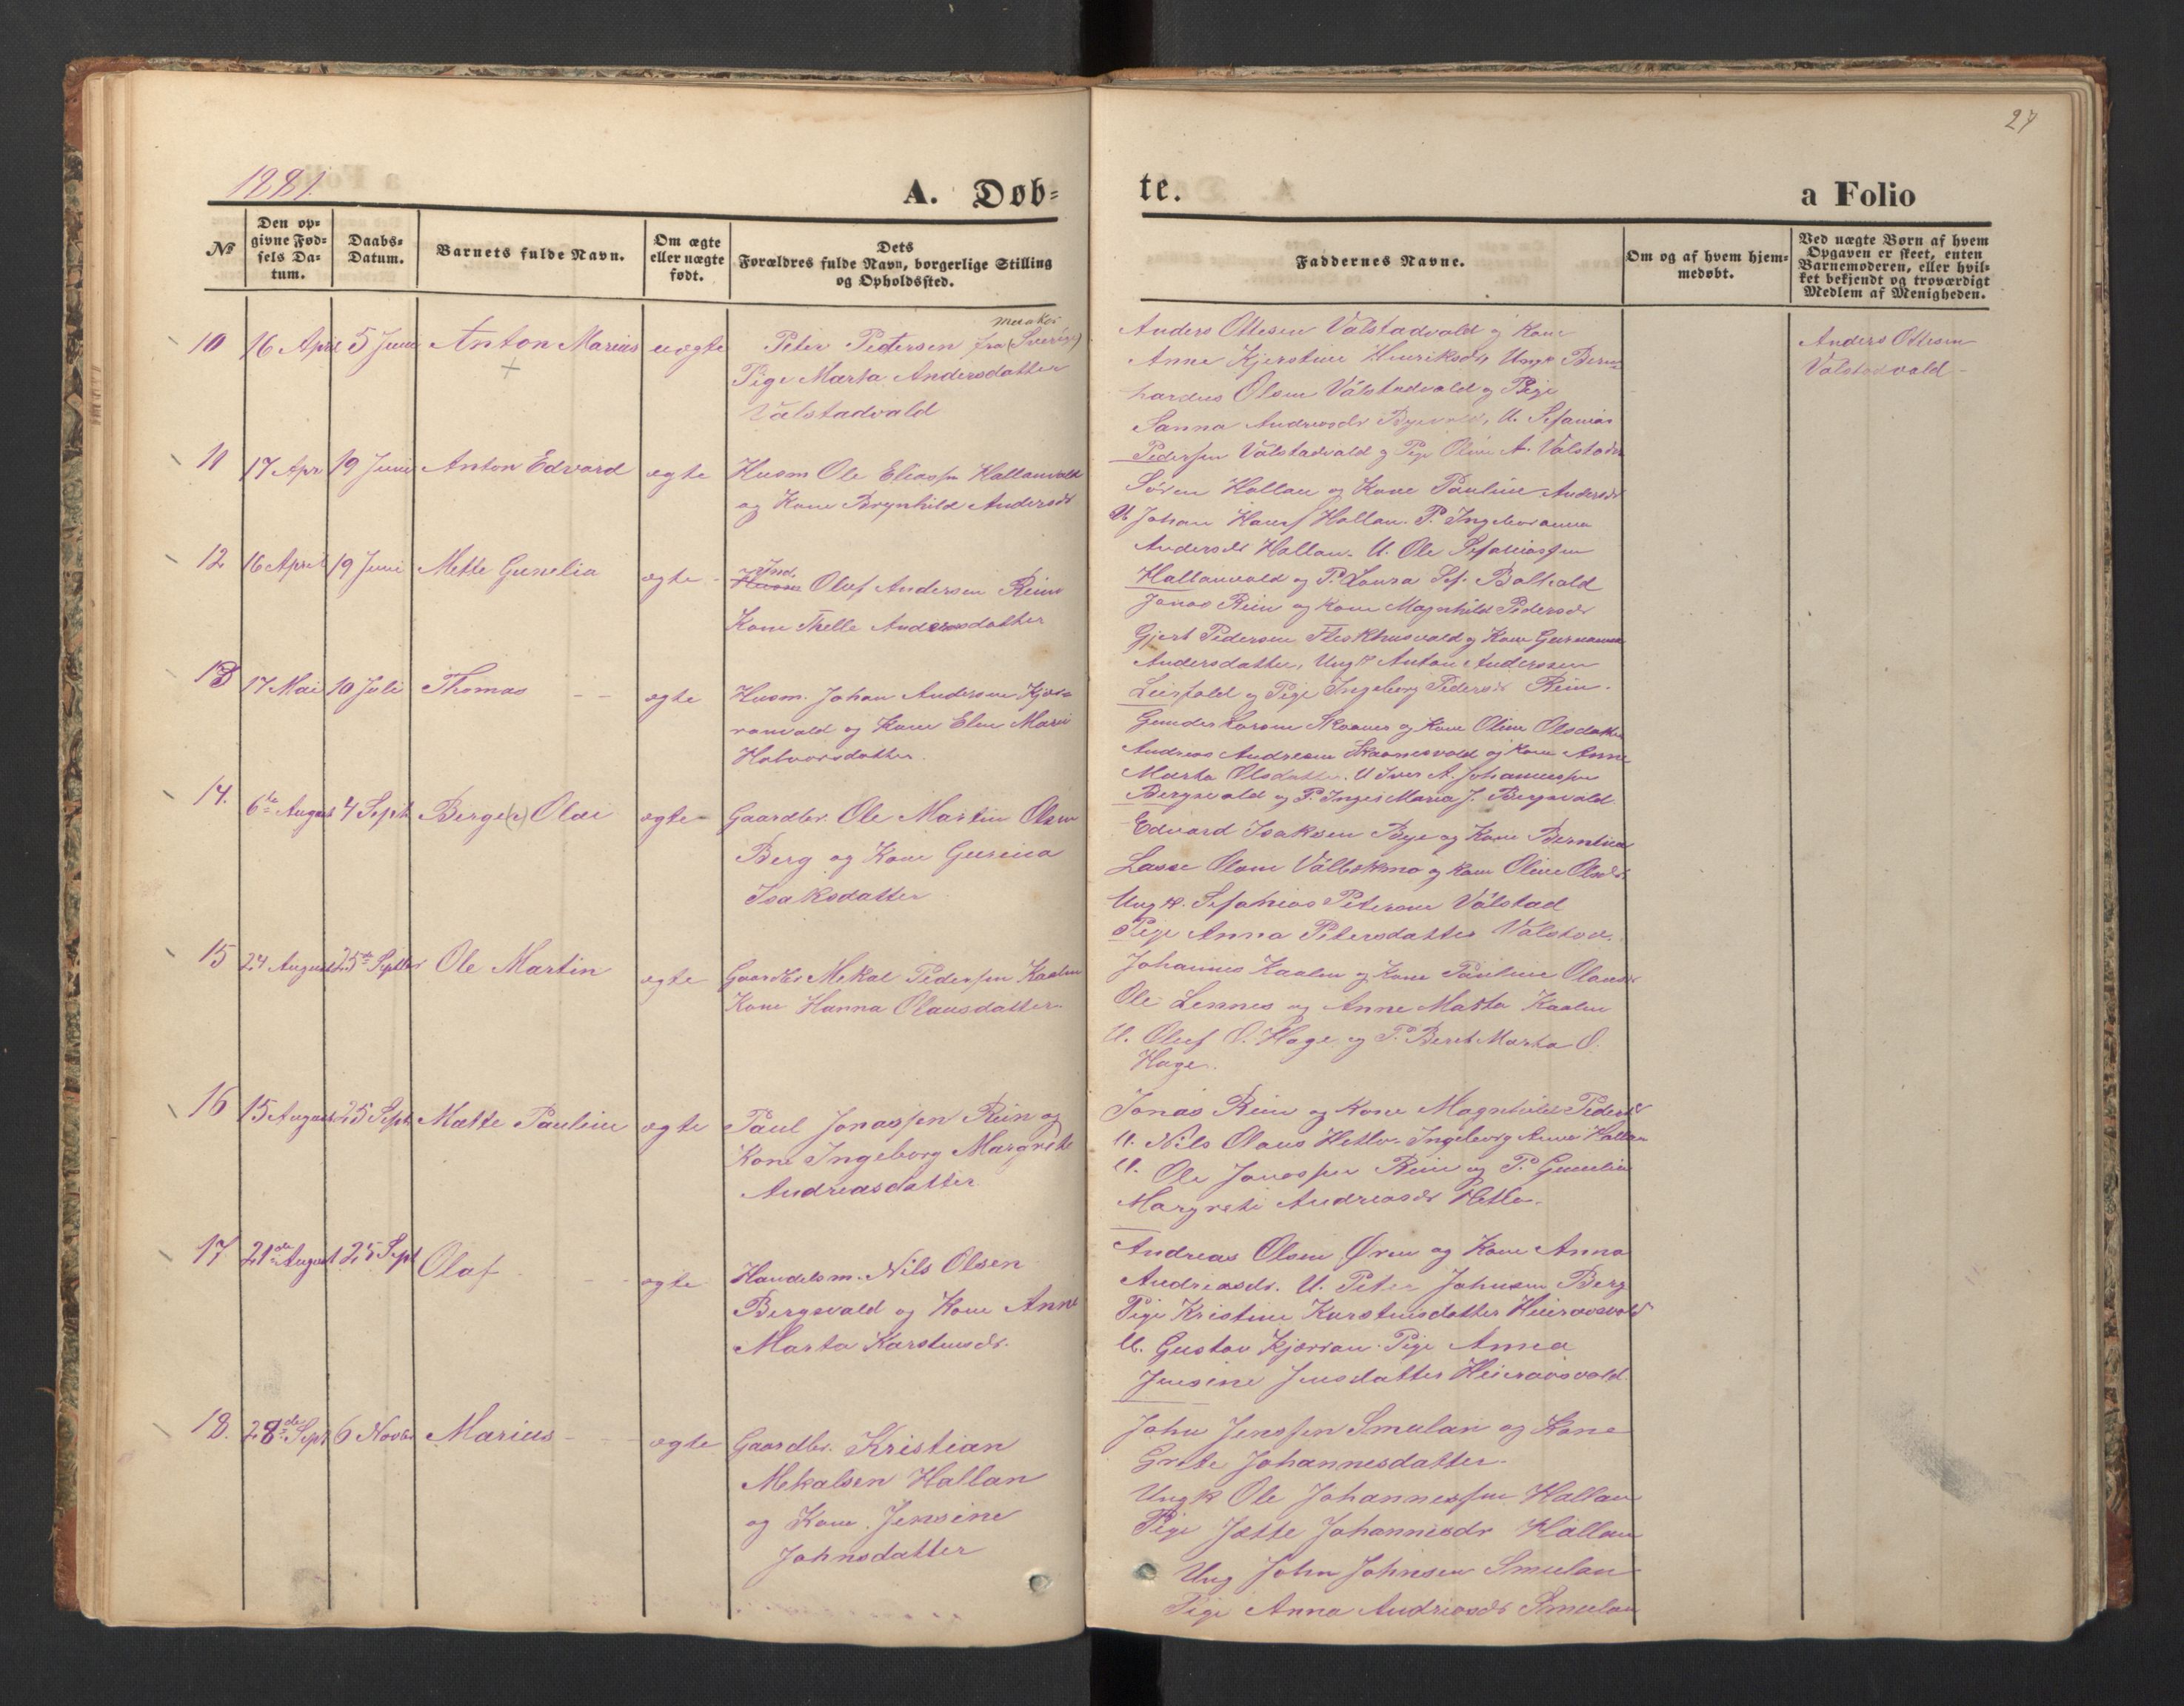 27
1881.
A. Døb=
te.
a Folio
№
Den op=
givne Fød=
sels Da=
tum.
Daabs=
Datum.
Barnets fulde Navn.
Om ægte
eller uægte
født.
Dets
Forældres fulde Navn, borgerlige Stilling
og Opholdssted.
Faddernes Navne.
Om og af hvem hjem=
medøbt.
Ved uægte Børn af hvem
Opgaven er skeet, enten
Barnemoderen, eller hvil=
ket bekjendt og troværdigt
Medlem af Menigheden.
10 16 April 5 Juni Anton Marius uægte Peter Pettersen fra (Sverige)
Pige Marta Andersdatter
Valstadvald
Anders Ottesen Valstadvald og Kone
Anne Kjerstine Henriksdr, Ungk Bern=
hardus Olsen Valstadvald og Pige
Sanna Andreasdr U. Sefanias
Pedersen Valstadvald og Pige Oline A. Valstadv
Anders Ottesen
Valstadvald
11 17 Apr 19 Juni Anton Edvard ægte Husm Ole Eliassen Hallanvald
og Kone Brynhild Andersdr
Søren Hallan og Kone Pauline Andersdr
U. Johan Hallan. P. Ingeboranna
Andersdr Hallan. U. Ole Sefaniassen
Hallanvald og P. Laura Sef.
12 16 April 19 Juni Mette Gunelia ægte Ind. Oluf Andersen Rein
Kone Andersdatter
Jonas Rein og Kone Magnhild Pedersdr
Gjert Pedersen Fleskhusvald og Kone
Andersdatter, Ungk Anton Anderssen
og Pige Ingeborg Pedersdr Rein.
13 17 Mai 10 Juli Thomas ægte Husm. Johan Andersen Kjær=
ranvald og Kone Elen Marie
Halvorsdatter.
Larsen og Kone Oline Olsdatter
Andreas Andresen og Kone Anne
Marta Olsdatter. U Iver A. Johannessen
Bergsvald og P. Maria J. Bergsvald.
14. 6te August 4 Sept Berge(r) Olai ægte Gaardbr. Ole Martin Olsen
Berg og Kone Gurina
Isaksdatter
Edvard Isaksen Bye og Kone Berntina
Lasse Olsen og Kone Oline Olsdr.
Ungk. Sefanias Petersen Valstad
Pige Anna Petersdatter Valstad.
15 24 August 25de Septbr Ole Martin ægte Gaardbr Mekal Pedersen Kaalen
Kone Hanna Olausdatter.
Johannes Kaalen og Kone Pauline Olausdr
Ole Lennes og Anne Marta Kaalen
U. Oluf O. Hage og P. Beret Marta O.
Hage.
16 15 August 25 Sept Mette Pauline ægte Paul Jonassen Rein og
Kone Ingeborg Margrete
Andreasdatter
Jonas Rein og Kone Magnhild Pedersdr
U. Nils Olaus Hetlo. Ingeborg Anna Hallan
U. Ole Jonassen Rein og P. Gunelia
Margrete Andreasdr Hetlo.
17. 21de August 25 Sept Olaf ægte Handelsm. Nils Olsen
Bergsvald og Kone Anne
Marta Karstensdr.
Andreas Olsen Øren og Kone Anna
Andreasdr. U. Peter Johnsen Berg
Pige Kristine Karstensdatter
U. Gustav Kjærran. Pige Anna
Jensine Jensdatter
18. 28de Sept 6 Novbr Marius ægte Gaardbr. Kristian
Mekalsen Hallan
og Kone Jensine
Johnsdatter
John Jenssen Smulan og Kone
Grete Johannesdatter.
Ungk Ole Johannessen Hallan
Pige Jette Johannesdr Hallan
Ung John Johnsen Smulan
Pige Anna Andreasdr Smulan